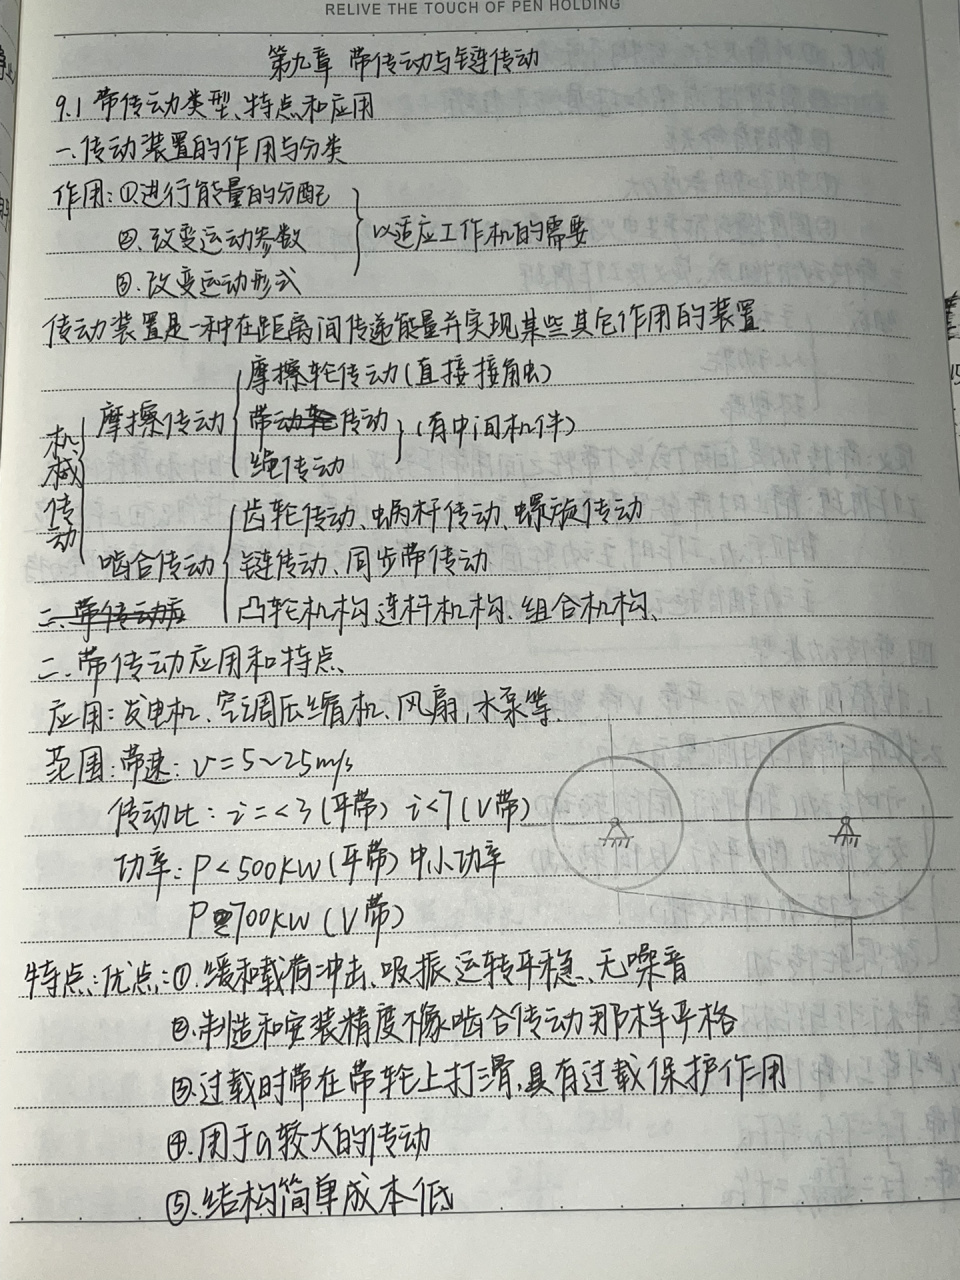 RELIVE THE TOUCH OF PEN HOLDING
第九章 带传动与链传动
9.1 带传动类型、特点和应用
一.传动装置的作用与分类
作用:①进行能量的分配
②.改变运动参数
以适应工作机的需要
③.改变运动形式
传动装置是一种在距离间传递能量并实现某些其它作用的装置.
机械传动
摩擦传动
摩擦轮传动(直接接触)
带传动
(有中间机件)
绳传动
啮合传动
齿轮传动、蜗杆传动、螺旋传动
链传动、同步带传动
凸轮机构、连杆机构、组合机构、
二、带传动应
二.带传动应用和特点、
应用:发电机、空调压缩机、风扇,水泵等.
范围:带速:v=5~25m/s
传动比:i=<3(平带) i<7(V带)
功率:P<500KW(平带)中小功率
P 700KW(V带)
特点:优点:①.缓和载荷冲击、吸振、运转平稳、无噪音
②.制造和安装精度不像啮合传动那样严格
③.过载时带在带轮上打滑,具有过载保护作用
④.用于a较大的传动
⑤.结构简单成本低